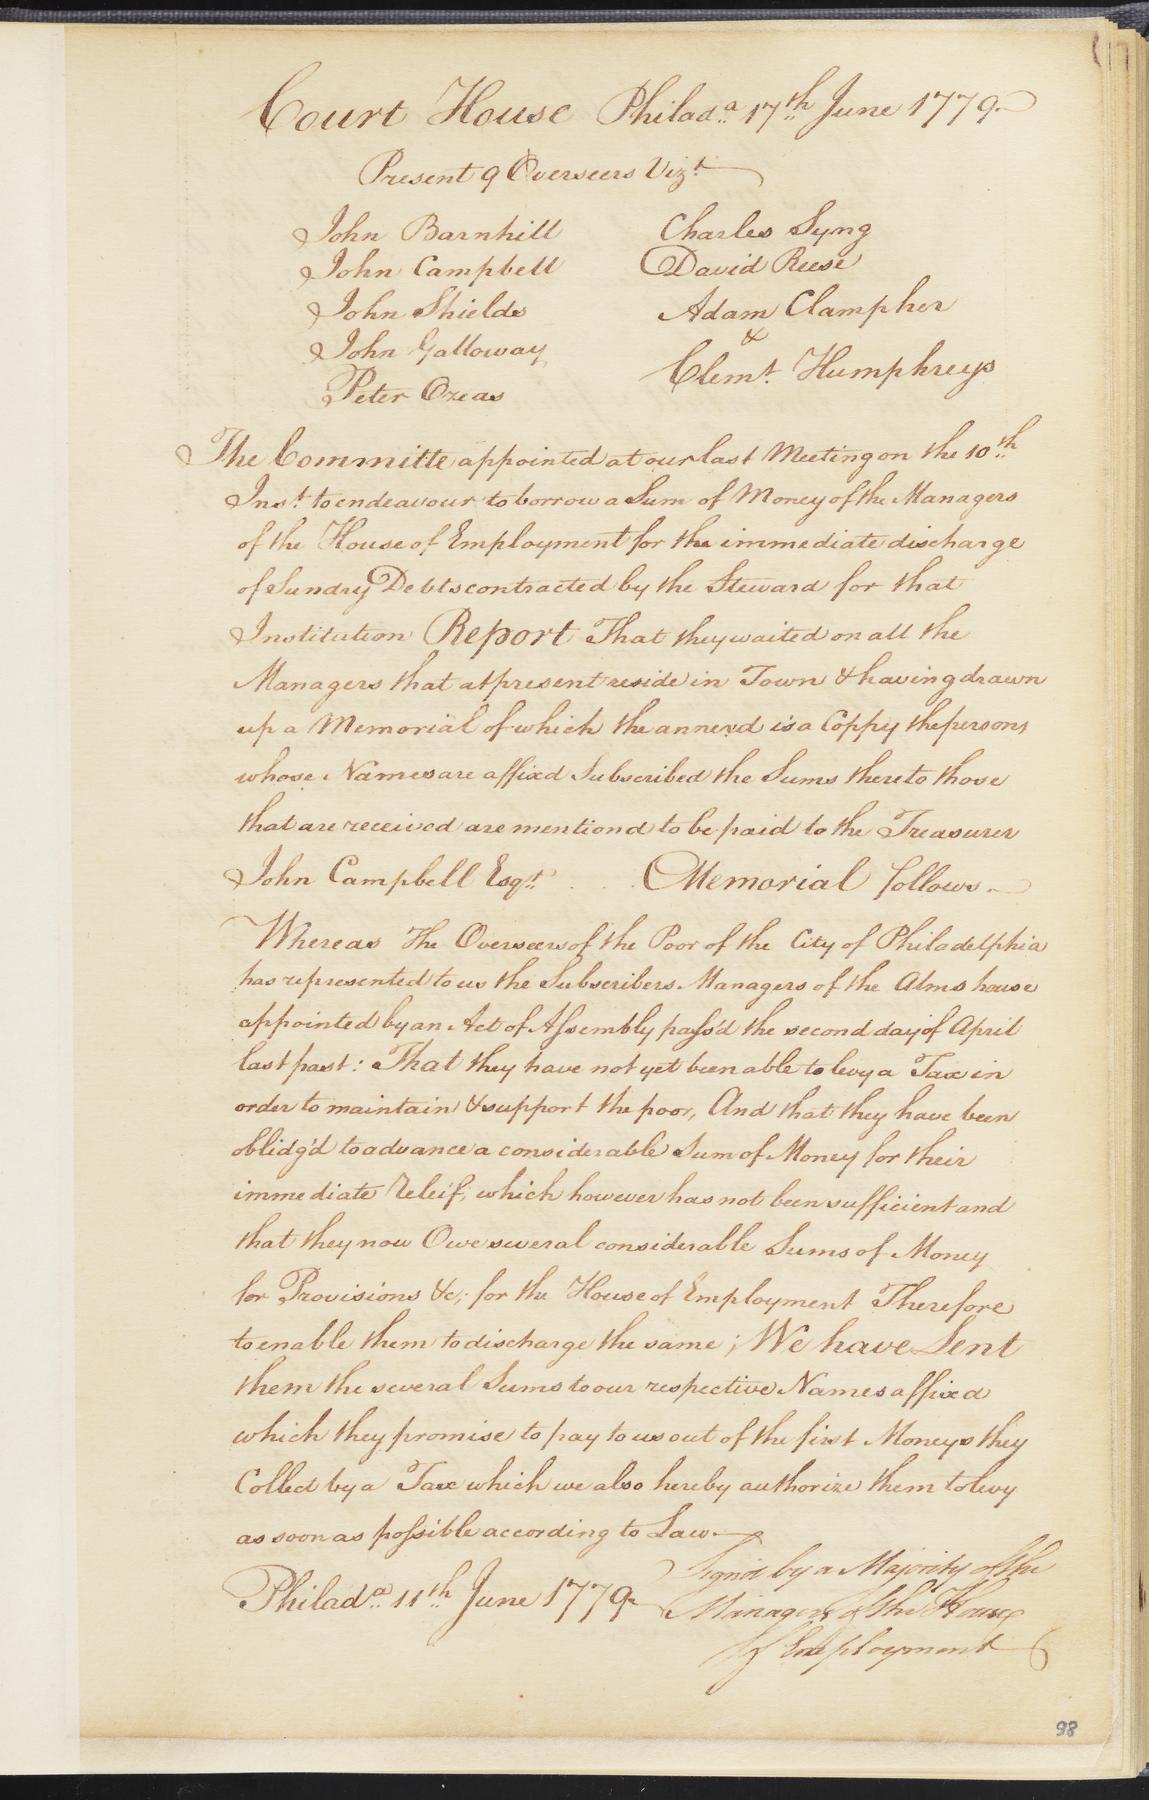 Court House Philad.a 17th June 1779
Present 9 Overseers Vizt
John Barnhill
John Campbell
John Shields
John Galloway
Peter Ozeas
Charles Syng
David Reese
Adam Clampher
&
Clemt. Humphreys
The Committe appointed at our last Meeting on the 10th
Inst. to endeavour to borrow a Sum of Money of the Managers
of the House of Employment for the immediate discharge
of Sundry Debts contracted by the Steward for that
Institution Report That they waited on all the
Managers that at present reside in Town & having drawn
up a Memorial of which the annexd is a Coppy the persons
whose Names are affixd Subscribed the Sums thereto those
that are received are mentiond to be paid to the Treasurer
John Campbell Esqr. . . . Memorial follows
Whereas The Overseers of the Poor of the City of Philadelphia
has represented to us the Subscribers Managers of the Alms house
appointed by an Act of Assembly pass'd the second day of April
last past: That they have not yet been able to levy a Tax in
order to maintain & support the poor, And that they have been
oblidg'd to advance a considerable Sum of Money for their
immediate Releif, which however has not been sufficient and
that they now Owe several considerable Sums of Money
for Provisions &c; for the House of Employment Therefore
to enable them to discharge the same; We have Lent
them the several Sums to our respective Names affixd
which they promise to pay to us out of the first Moneys they
Collect by a Tax which we also hereby authorize them to levy
as soon as possible according to Law
Philad.a 11th June 1779
Signd by a Majority of the
Managers of the House
of Employment
98